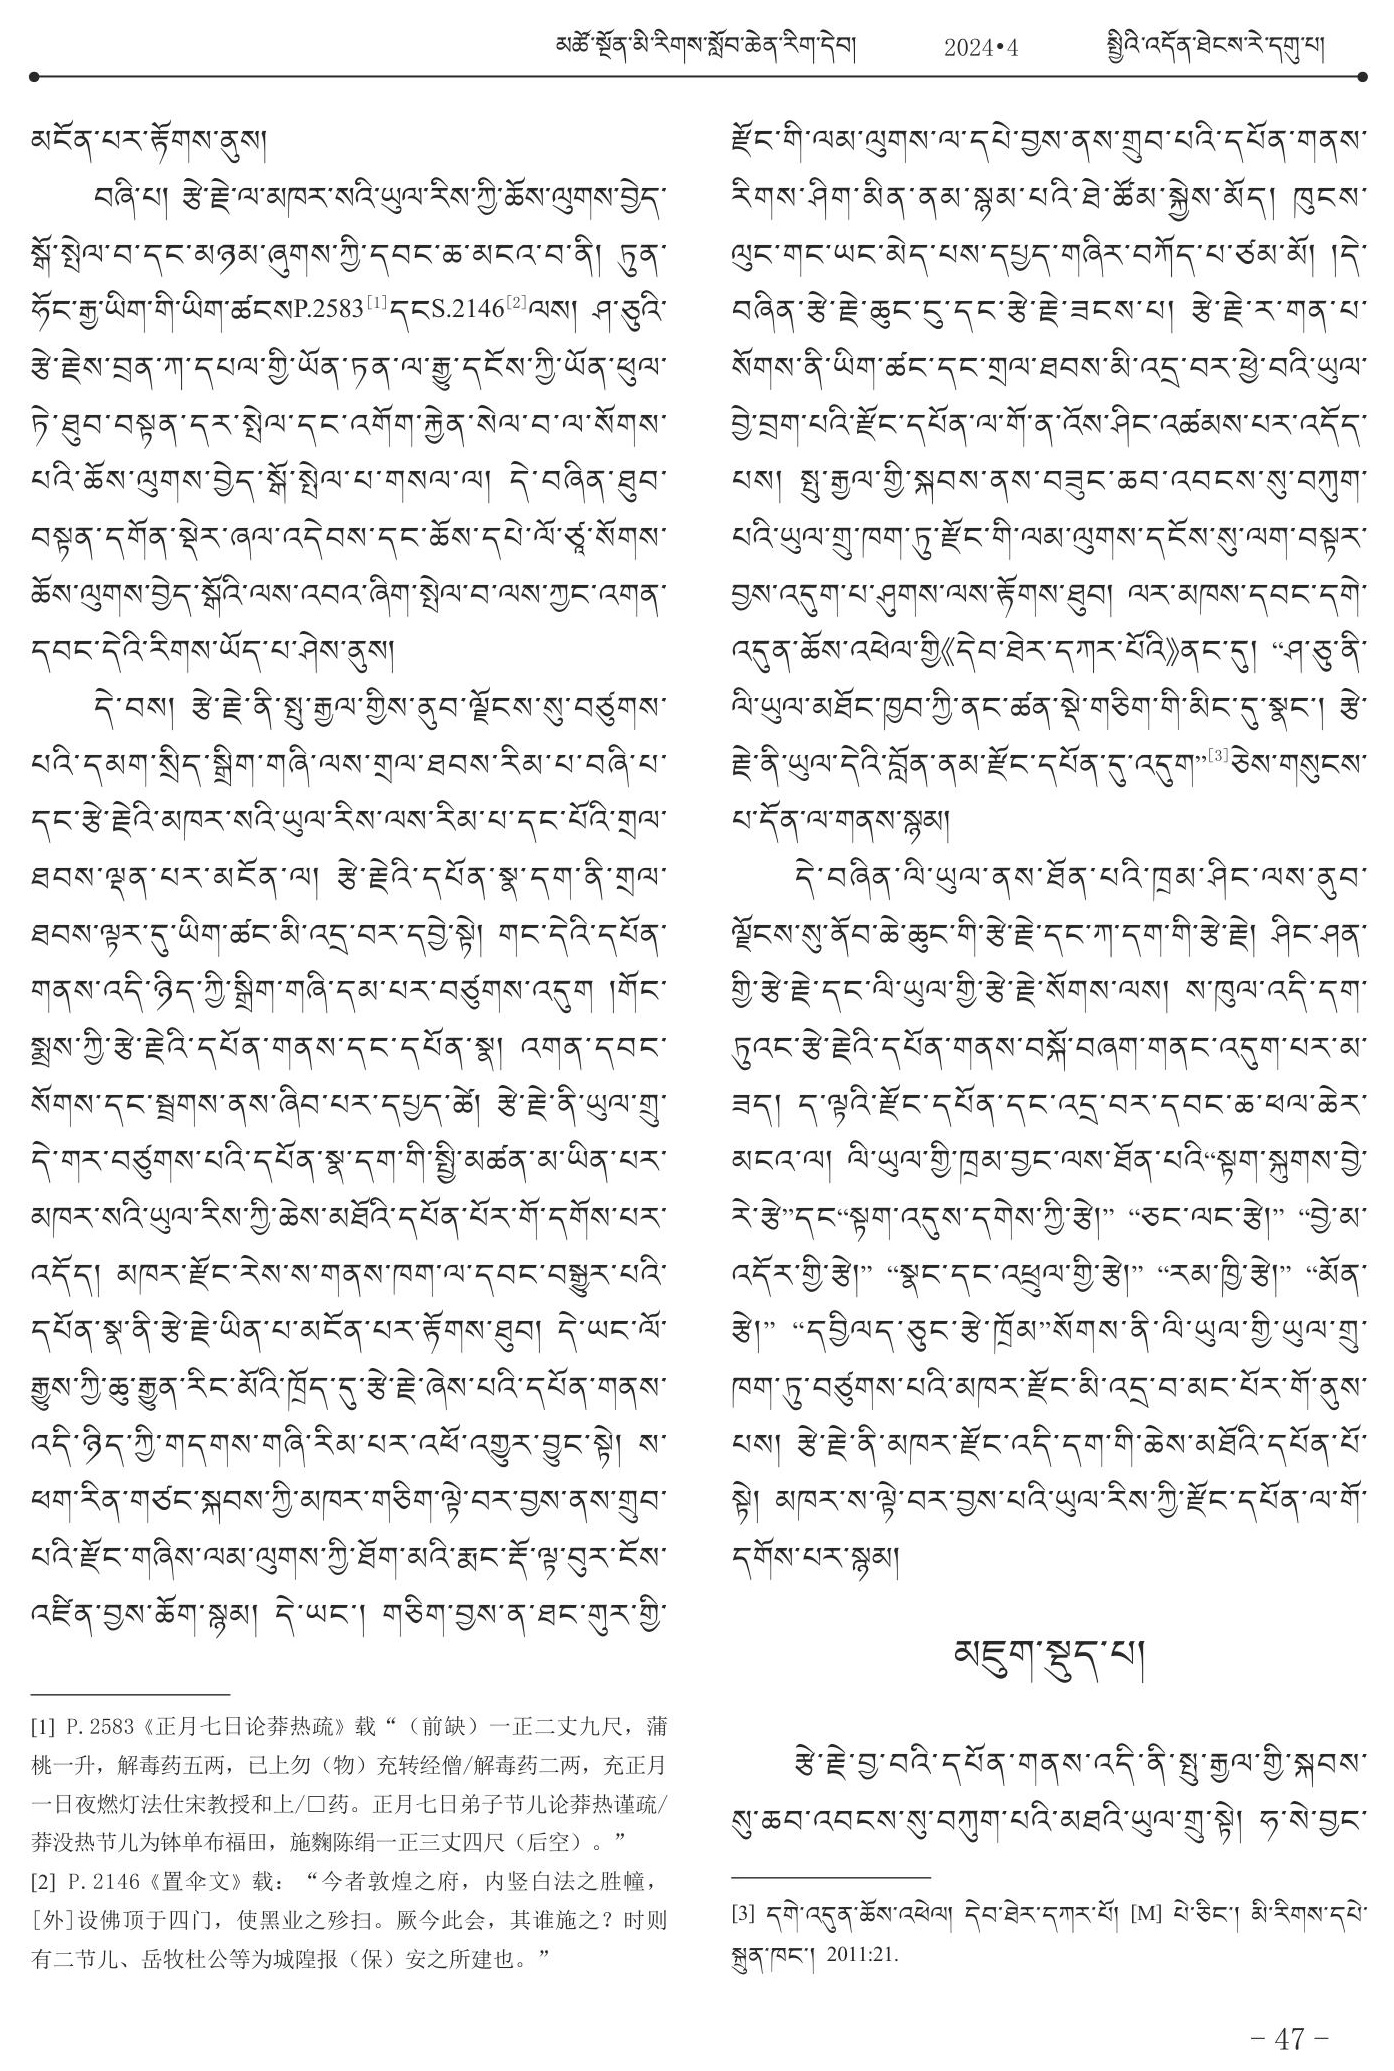 མཚོ་སྔོན་མི་རིགས་སློབ་ཆེན་རིག་དེབ། 2024•4 སྤྱིའི་འདོན་ཐེངས་རེ་དགུ་པ།
མངོན་པར་རྟོགས་ནུས།
བཞི་པ། རྩེ་རྗེ་ལ་མཁར་སའི་ཡུལ་རིས་ཀྱི་ཆོས་ལུགས་བྱེད་
སྒོ་སྤེལ་བ་དང་མཉམ་ཞུགས་ཀྱི་དབང་ཆ་མངའ་བ་ནི། ཏུན་
ཧོང་རྒྱ་ཡིག་གི་ཡིག་ཚངསP.2583[1]དངS.2146[2]ལས། ཤ་ཅུའི་
རྩེ་རྗེས་བྲན་ཀ་དཔལ་གྱི་ཡོན་ཏན་ལ་རྒྱུ་དངོས་ཀྱི་ཡོན་ཕུལ་
ཏེ་ཐུབ་བསྟན་དར་སྤེལ་དང་འགོག་རྐྱེན་སེལ་བ་ལ་སོགས་
པའི་ཆོས་ལུགས་བྱེད་སྒོ་སྤེལ་པ་གསལ་ལ། དེ་བཞིན་ཐུབ་
བསྟན་དགོན་སྡེར་ཞལ་འདེབས་དང་ཆོས་དཔེ་ལོ་ཙཱ་སོགས་
ཆོས་ལུགས་བྱེད་སྒོའི་ལས་འབའ་ཞིག་སྤེལ་བ་ལས་ཀྱང་འགན་
དབང་དེའི་རིགས་ཡོད་པ་ཤེས་ནུས།
དེ་བས། རྩེ་རྗེ་ནི་སྤུ་རྒྱལ་གྱིས་ནུབ་ལྗོངས་སུ་བཙུགས་
པའི་དམག་སྲིད་སྒྲིག་གཞི་ལས་གྲལ་ཐབས་རིམ་པ་བཞི་པ་
དང་རྩེ་རྗེའི་མཁར་སའི་ཡུལ་རིས་ལས་རིམ་པ་དང་པོའི་གྲལ་
ཐབས་ལྡན་པར་མངོན་ལ། རྩེ་རྗེའི་དཔོན་སྣ་དག་ནི་གྲལ་
ཐབས་ལྟར་དུ་ཡིག་ཚང་མི་འདྲ་བར་དབྱེ་སྟེ། གང་དེའི་དཔོན་
གནས་འདི་ཉིད་ཀྱི་སྒྲིག་གཞི་དམ་པར་བཙུགས་འདུག །གོང་
སྨྲས་ཀྱི་རྩེ་རྗེའི་དཔོན་གནས་དང་དཔོན་སྣ། འགན་དབང་
སོགས་དང་སྦྲགས་ནས་ཞིབ་པར་དཔྱད་ཚེ། རྩེ་རྗེ་ནི་ཡུལ་གྲུ་
དེ་གར་བཙུགས་པའི་དཔོན་སྣ་དག་གི་སྤྱི་མཚན་མ་ཡིན་པར་
མཁར་སའི་ཡུལ་རིས་ཀྱི་ཆེས་མཐོའི་དཔོན་པོར་གོ་དགོས་པར་
འདོད། མཁར་རྫོང་རེས་ས་གནས་ཁག་ལ་དབང་བསྒྱུར་པའི་
དཔོན་སྣ་ནི་རྩེ་རྗེ་ཡིན་པ་མངོན་པར་རྟོགས་ཐུབ། དེ་ཡང་ལོ་
རྒྱུས་ཀྱི་ཆུ་རྒྱུན་རིང་མོའི་ཁྲོད་དུ་རྩེ་རྗེ་ཞེས་པའི་དཔོན་གནས་
འདི་ཉིད་ཀྱི་གདགས་གཞི་རིམ་པར་འཕོ་འགྱུར་བྱུང་སྟེ། ས་
ཕག་རིན་གཙང་སྐབས་ཀྱི་མཁར་གཅིག་ལྟེ་བར་བྱས་ནས་གྲུབ་
པའི་རྫོང་གཞིས་ལམ་ལུགས་ཀྱི་ཐོག་མའི་རྨང་རྡོ་ལྟ་བུར་ངོས་
འཛིན་བྱས་ཆོག་སྙམ། དེ་ཡང་། གཅིག་བྱས་ན་ཐང་གུར་གྱི་
[1] P.2583《正月七日论莽热疏》载“（前缺）一正二丈九尺，蒲
桃一升，解毒药五两，已上勿（物）充转经僧/解毒药二两，充正月
一日夜燃灯法仕宋教授和上/□药。正月七日弟子节儿论莽热谨疏/
莽没热节儿为钵单布福田，施麴陈绢一正三丈四尺（后空）。”
[2] P.2146《置伞文》载：“今者敦煌之府，内竖白法之胜幢，
[外]设佛顶于四门，使黑业之殄扫。厥今此会，其谁施之？时则
有二节儿、岳牧杜公等为城隍报（保）安之所建也。”
རྫོང་གི་ལམ་ལུགས་ལ་དཔེ་བྱས་ནས་གྲུབ་པའི་དཔོན་གནས་
རིགས་ཤིག་མིན་ནམ་སྙམ་པའི་ཐེ་ཚོམ་སྐྱེས་མོད། ཁུངས་
ལུང་གང་ཡང་མེད་པས་དཔྱད་གཞིར་བཀོད་པ་ཙམ་མོ། །དེ་
བཞིན་རྩེ་རྗེ་ཆུང་ངུ་དང་རྩེ་རྗེ་ཟངས་པ། རྩེ་རྗེ་ར་གན་པ་
སོགས་ནི་ཡིག་ཚང་དང་གྲལ་ཐབས་མི་འདྲ་བར་ཕྱེ་བའི་ཡུལ་
བྱེ་བྲག་པའི་རྫོང་དཔོན་ལ་གོ་ན་འོས་ཤིང་འཚམས་པར་འདོད་
པས། སྤུ་རྒྱལ་གྱི་སྐབས་ནས་བཟུང་ཆབ་འབངས་སུ་བཀུག་
པའི་ཡུལ་གྲུ་ཁག་ཏུ་རྫོང་གི་ལམ་ལུགས་དངོས་སུ་ལག་བསྟར་
བྱས་འདུག་པ་ཤུགས་ལས་རྟོགས་ཐུབ། ལར་མཁས་དབང་དགེ་
འདུན་ཆོས་འཕེལ་གྱི《དེབ་ཐེར་དཀར་པོའི》ནང་དུ། “ཤ་ཅུ་ནི་
ལི་ཡུལ་མཐོང་ཁྱབ་ཀྱི་ནང་ཚན་སྡེ་གཅིག་གི་མིང་དུ་སྣང་། རྩེ་
རྗེ་ནི་ཡུལ་དེའི་བློན་ནམ་རྫོང་དཔོན་དུ་འདུག”[3]ཅེས་གསུངས་
པ་དོན་ལ་གནས་སྙམ།
དེ་བཞིན་ལི་ཡུལ་ནས་ཐོན་པའི་ཁྲམ་ཤིང་ལས་ནུབ་
ལྗོངས་སུ་ནོབ་ཆེ་ཆུང་གི་རྩེ་རྗེ་དང་ཀ་དག་གི་རྩེ་རྗེ། ཤིང་ཤན་
གྱི་རྩེ་རྗེ་དང་ལི་ཡུལ་གྱི་རྩེ་རྗེ་སོགས་ལས། ས་ཁུལ་འདི་དག་
ཏུའང་རྩེ་རྗེའི་དཔོན་གནས་བསྐོ་བཞག་གནང་འདུག་པར་མ་
ཟད། ད་ལྟའི་རྫོང་དཔོན་དང་འདྲ་བར་དབང་ཆ་ཕལ་ཆེར་
མངའ་ལ། ལི་ཡུལ་གྱི་ཁྲམ་བྱང་ལས་ཐོན་པའི“སྟག་སྐུགས་བྱེ་
རེ་རྩེ”དང“སྟག་འདུས་དགེས་ཀྱི་རྩེ།” “ཅང་ལང་རྩེ།” “བྱེ་མ་
འདོར་གྱི་རྩེ།” “སྣང་དང་འཕྲུལ་གྱི་རྩེ།” “རམ་ཁྱི་རྩེ།” “མོན་
རྩེ།” “དབྱིལད་ཅུང་རྩེ་ཁྲོམ”སོགས་ནི་ལི་ཡུལ་གྱི་ཡུལ་གྲུ་
ཁག་ཏུ་བཙུགས་པའི་མཁར་རྫོང་མི་འདྲ་བ་མང་པོར་གོ་ནུས་
པས། རྩེ་རྗེ་ནི་མཁར་རྫོང་འདི་དག་གི་ཆེས་མཐོའི་དཔོན་པོ་
སྟེ། མཁར་ས་ལྟེ་བར་བྱས་པའི་ཡུལ་རིས་ཀྱི་རྫོང་དཔོན་ལ་གོ་
དགོས་པར་སྙམ།
མཇུག་སྡུད་པ།
རྩེ་རྗེ་བྱ་བའི་དཔོན་གནས་འདི་ནི་སྤུ་རྒྱལ་གྱི་སྐབས་
སུ་ཆབ་འབངས་སུ་བཀུག་པའི་མཐའི་ཡུལ་གྲུ་སྟེ། ཧ་སེ་བྱང་
[3] དགེ་འདུན་ཆོས་འཕེལ། དེབ་ཐེར་དཀར་པོ། [M] པེ་ཅིང་། མི་རིགས་དཔེ་
སྐྲུན་ཁང་། 2011:21.
– 47 –